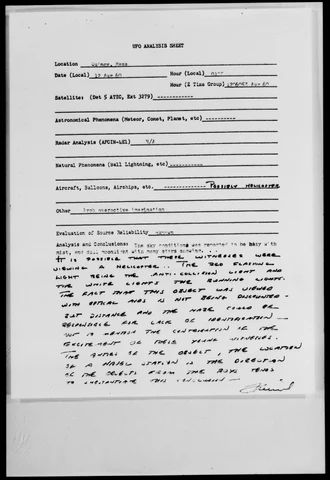 UFO ANALYSIS SHEET
Location Quincy, Mass
Date (Local) 12 Aug 60 Hour (Local)
Hour (Z Time Group) Aug 60
Satellite: (Det 5 ATSC, Ext 3279) ------------
Astronomical Phenomena (Meteor, Comet, Planet, etc) ------------
Radar Analysis (AFCIN-4E1) N/A
Natural Phenomena (Ball Lightning, etc) ------------
Aircraft, Balloons, Airships, etc. ------------ POSSIBLE HELICOPTER
Other overactive imagination
Evaluation of Source Reliability
Analysis and Conclusions: The sky conditions was reported to be hazy with
mist, and full moonlight with many stars showing...
IT IS POSSIBLE THAT THESE WITNESSES WERE
VIEWING A HELICOPTER. THE RED FLASHING
LIGHT BEING THE ANTI-COLLISION LIGHT AND
THE WHITE LIGHTS THE RUNNING LIGHTS.
THE FACT THAT THIS OBJECT WAS VIEWED
WITH OPTICAL AIDS IS NOT BEING DISCOUNTED-
BUT DISTANCE AND THE HAZE COULD BE
RESPONSIBLE FOR LACK OF IDENTIFICATION-
NOT TO MENTION THE CONTRIBUTION OF THE
EXCITEMENT OF THESE YOUNG WITNESSES.
THE OF THE OBJECT, THE LOCATION
OF A NAVAL STATION IN THE DIRECTION
OF THE OBJECTS FROM THE BOYS TENDS
TO SUBSTANTIATE THIS CONCLUSION —